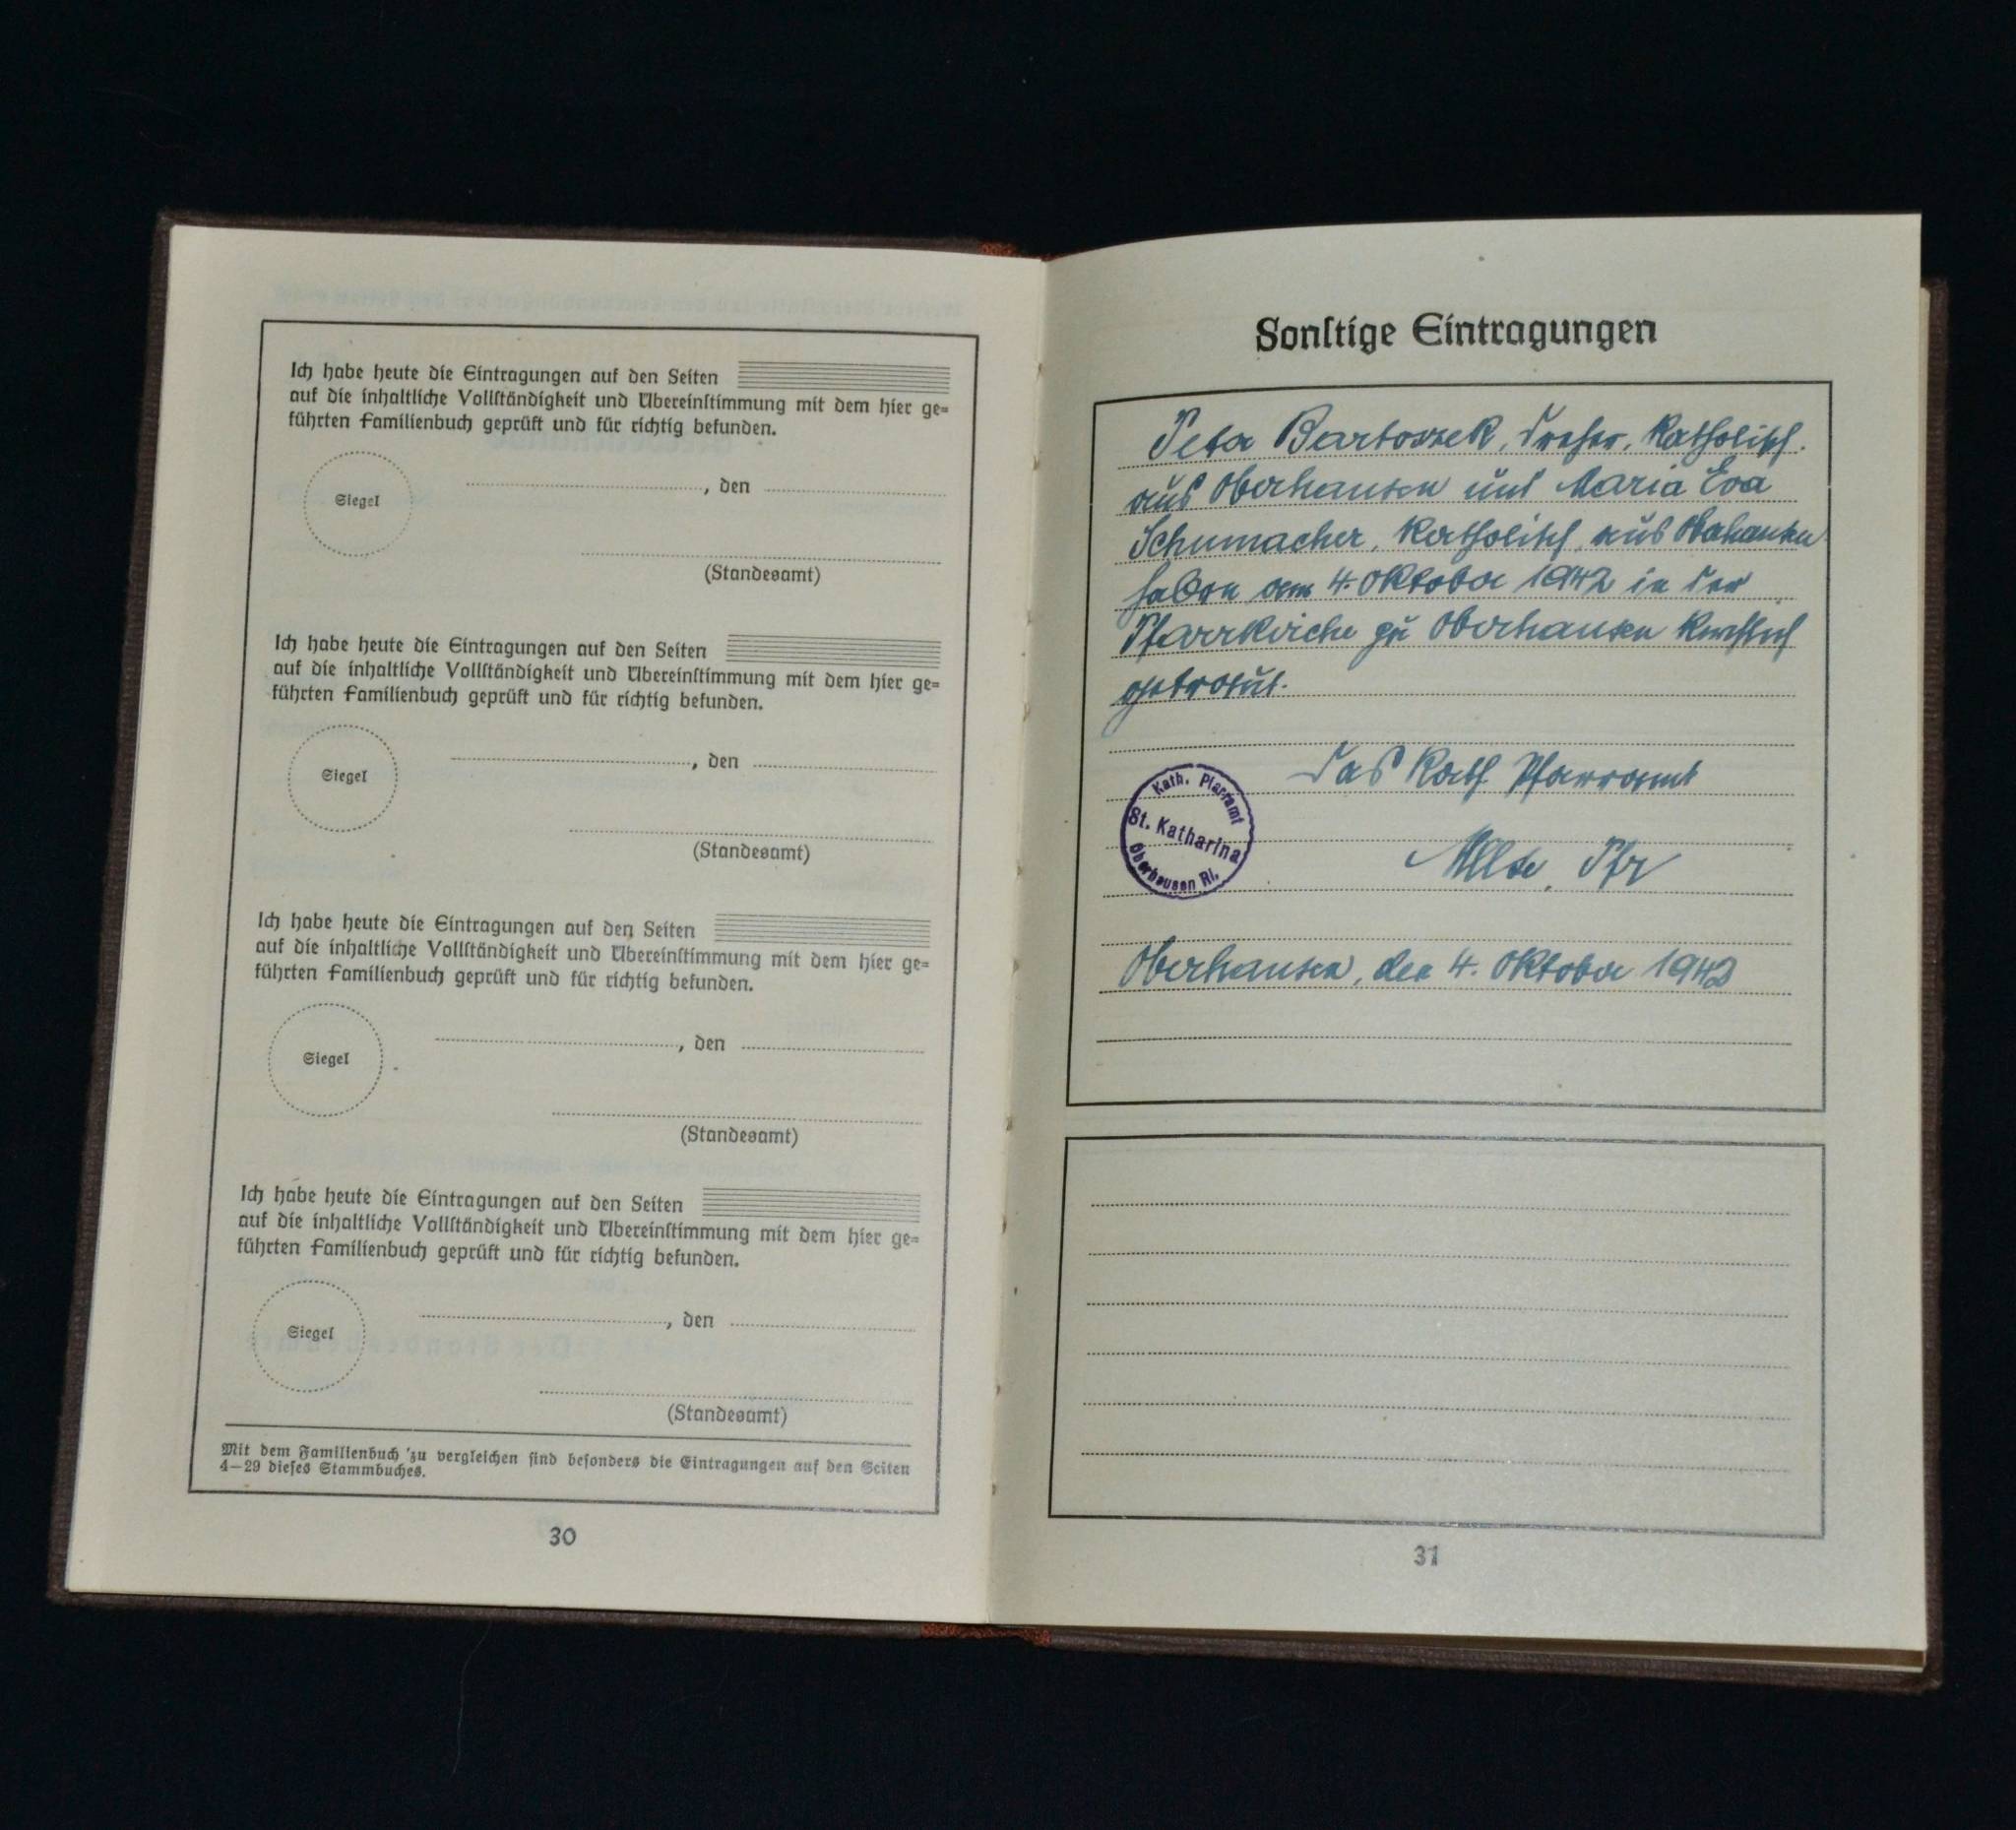 Ich habe heute die Eintragungen auf den Seiten
auf die inhaltliche Vollſtändigkeit und Übereinſtimmung mit dem hier ge=
führten Familienbuch geprüft und für richtig befunden.
Siegel
, den
(Standesamt)
Ich habe heute die Eintragungen auf den Seiten
auf die inhaltliche Vollſtändigkeit und Übereinſtimmung mit dem hier ge=
führten Familienbuch geprüft und für richtig befunden.
Siegel
, den
(Standesamt)
Ich habe heute die Eintragungen auf den Seiten
auf die inhaltliche Vollſtändigkeit und Übereinſtimmung mit dem hier ge=
führten Familienbuch geprüft und für richtig befunden.
Siegel
, den
(Standesamt)
Ich habe heute die Eintragungen auf den Seiten
auf die inhaltliche Vollſtändigkeit und Übereinſtimmung mit dem hier ge=
führten Familienbuch geprüft und für richtig befunden.
Siegel
, den
(Standesamt)
Mit dem Familienbuch zu vergleichen ſind beſonders die Eintragungen auf den Seiten
4—29 dieſes Stammbuches.
30
Sonſtige Eintragungen
Peter Bartoszek, Dreher, katholisch.
aus Oberhausen und Maria Eva
Schumacher, katholisch, aus Oberhausen
haben am 4. Oktober 1942 in der
Pfarrkirche zu Oberhausen kirchlich
getraut.
Das Kath Pfarramt
Kath. Pfarramt
St. Katharina
Oberhausen Rl.
Pfr
Oberhausen, den 4. Oktober 1942
31